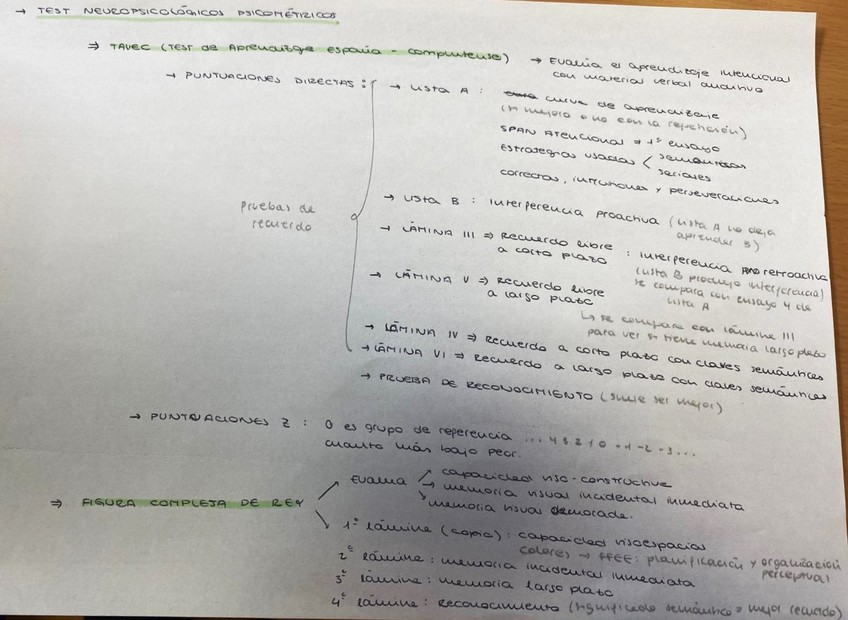 → TEST NEUROPSICOLÓGICOS PSICOMÉTRICOS
⇒ TAVEC (TEST de Aprendizaje españa - complutense) → Evalúa el aprendizaje intencional
con material verbal auditivo
→ PUNTUACIONES DIRECTAS :
→ Lista A : curva de aprendizaje
(si mejora o no con la repetición)
SPAN Atencional → 1º ensayo
Estrategias usadas < semánticas
seriales
correctas, intrusiones y perseveraciones
Pruebas de
recuerdo
→ Lista B : Interferencia proactiva (lista A no deja
aprender B)
→ LÁMINA III ⇒ Recuerdo libre : interferencia retroactiva
a corto plazo (lista B produjo interferencia)
se compara con ensayo 4 de
lista A
→ LÁMINA V ⇒ Recuerdo libre
a largo plazo
↳ se compara con lámina III
para ver si tiene memoria largo plazo
→ LÁMINA IV ⇒ Recuerdo a corto plazo con claves semánticas
→ LÁMINA VI ⇒ Recuerdo a largo plazo con claves semánticas
→ PRUEBA DE RECONOCIMIENTO (suele ser mejor)
→ PUNTUACIONES Z : 0 es grupo de referencia ... 4 3 2 1 0 -1 -2 -3 ...
cuanto más bajo peor.
⇒ FIGURA COMPLETA DE REY
Evalúa → capacidad viso-constructiva
→ memoria visual incidental inmediata
→ memoria visual demorada.
1ª lámina (copia) : capacidad visoespacial
colores → FFEE: planificación y organización
perceptual
2ª lámina : memoria incidental inmediata
3ª lámina : memoria largo plazo
4ª lámina : Reconocimiento (significado semántico = mejor recuerdo)